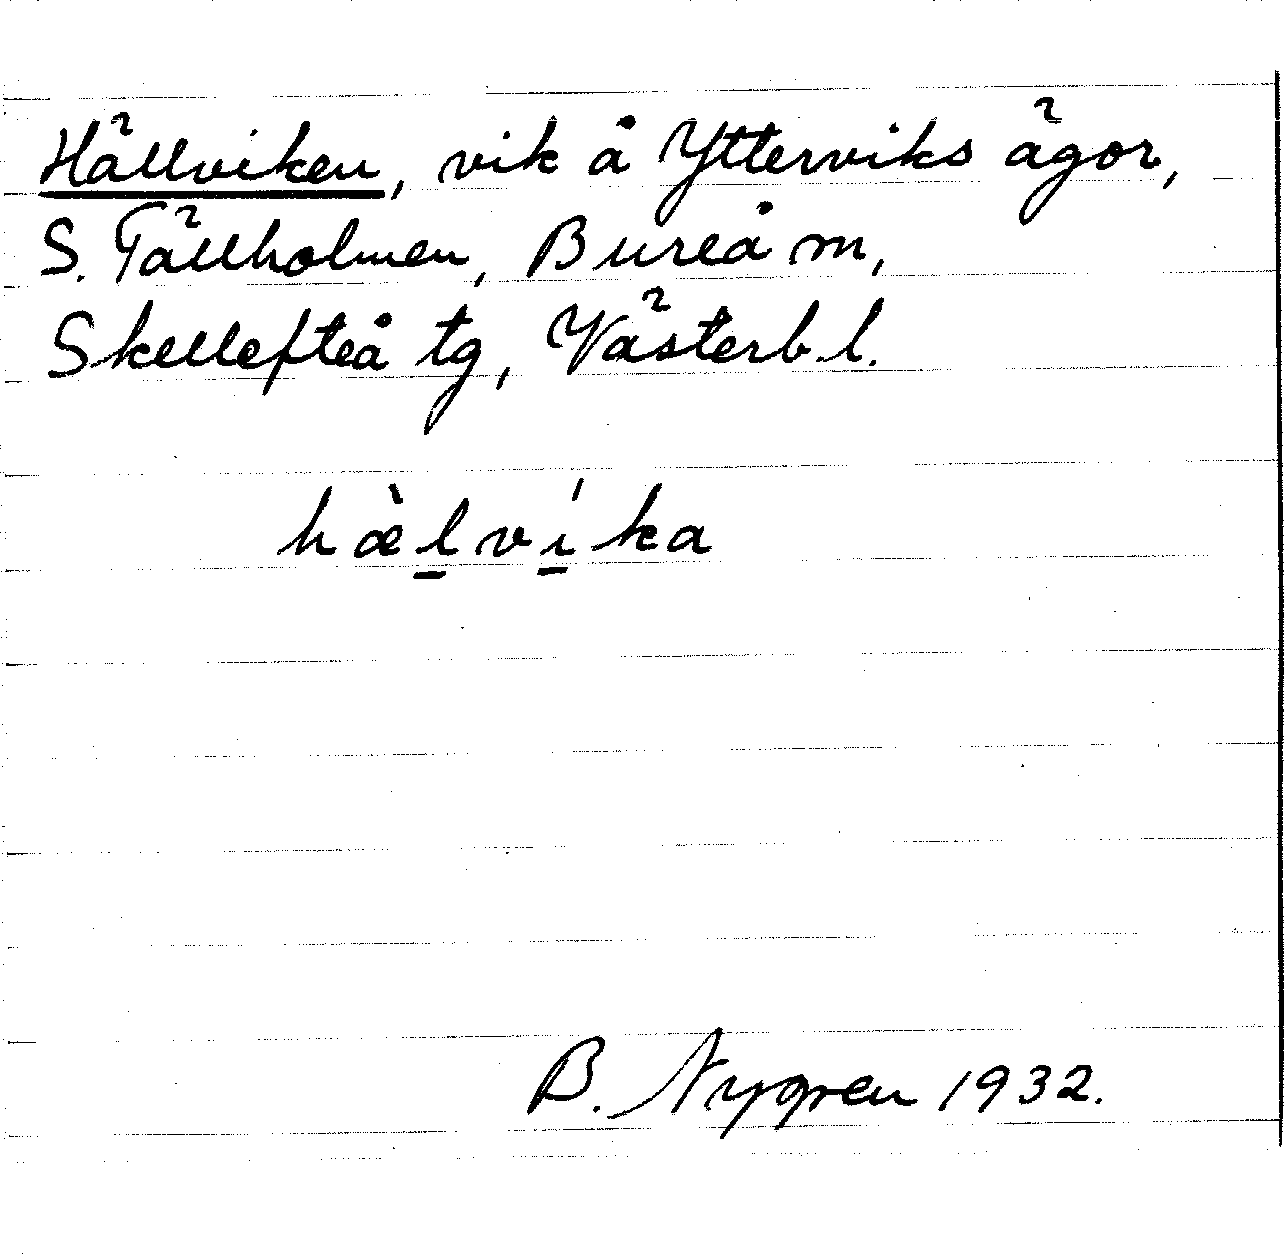 Hällviken, vik å Ytterviks ägor,
S. Tällholmen, Bureå m,
Skellefteå tg, Västerb. l.
hæ̀lvíka
B. Nygren 1932.